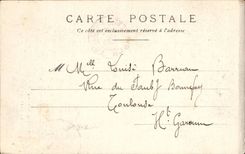 CARTE POSTALE
Ce côté est exclusivement réservé à l'adresse
M^elle Louise Barreau
Rue du Faub^g Bonnefoy
Toulouse
H^te Garonne